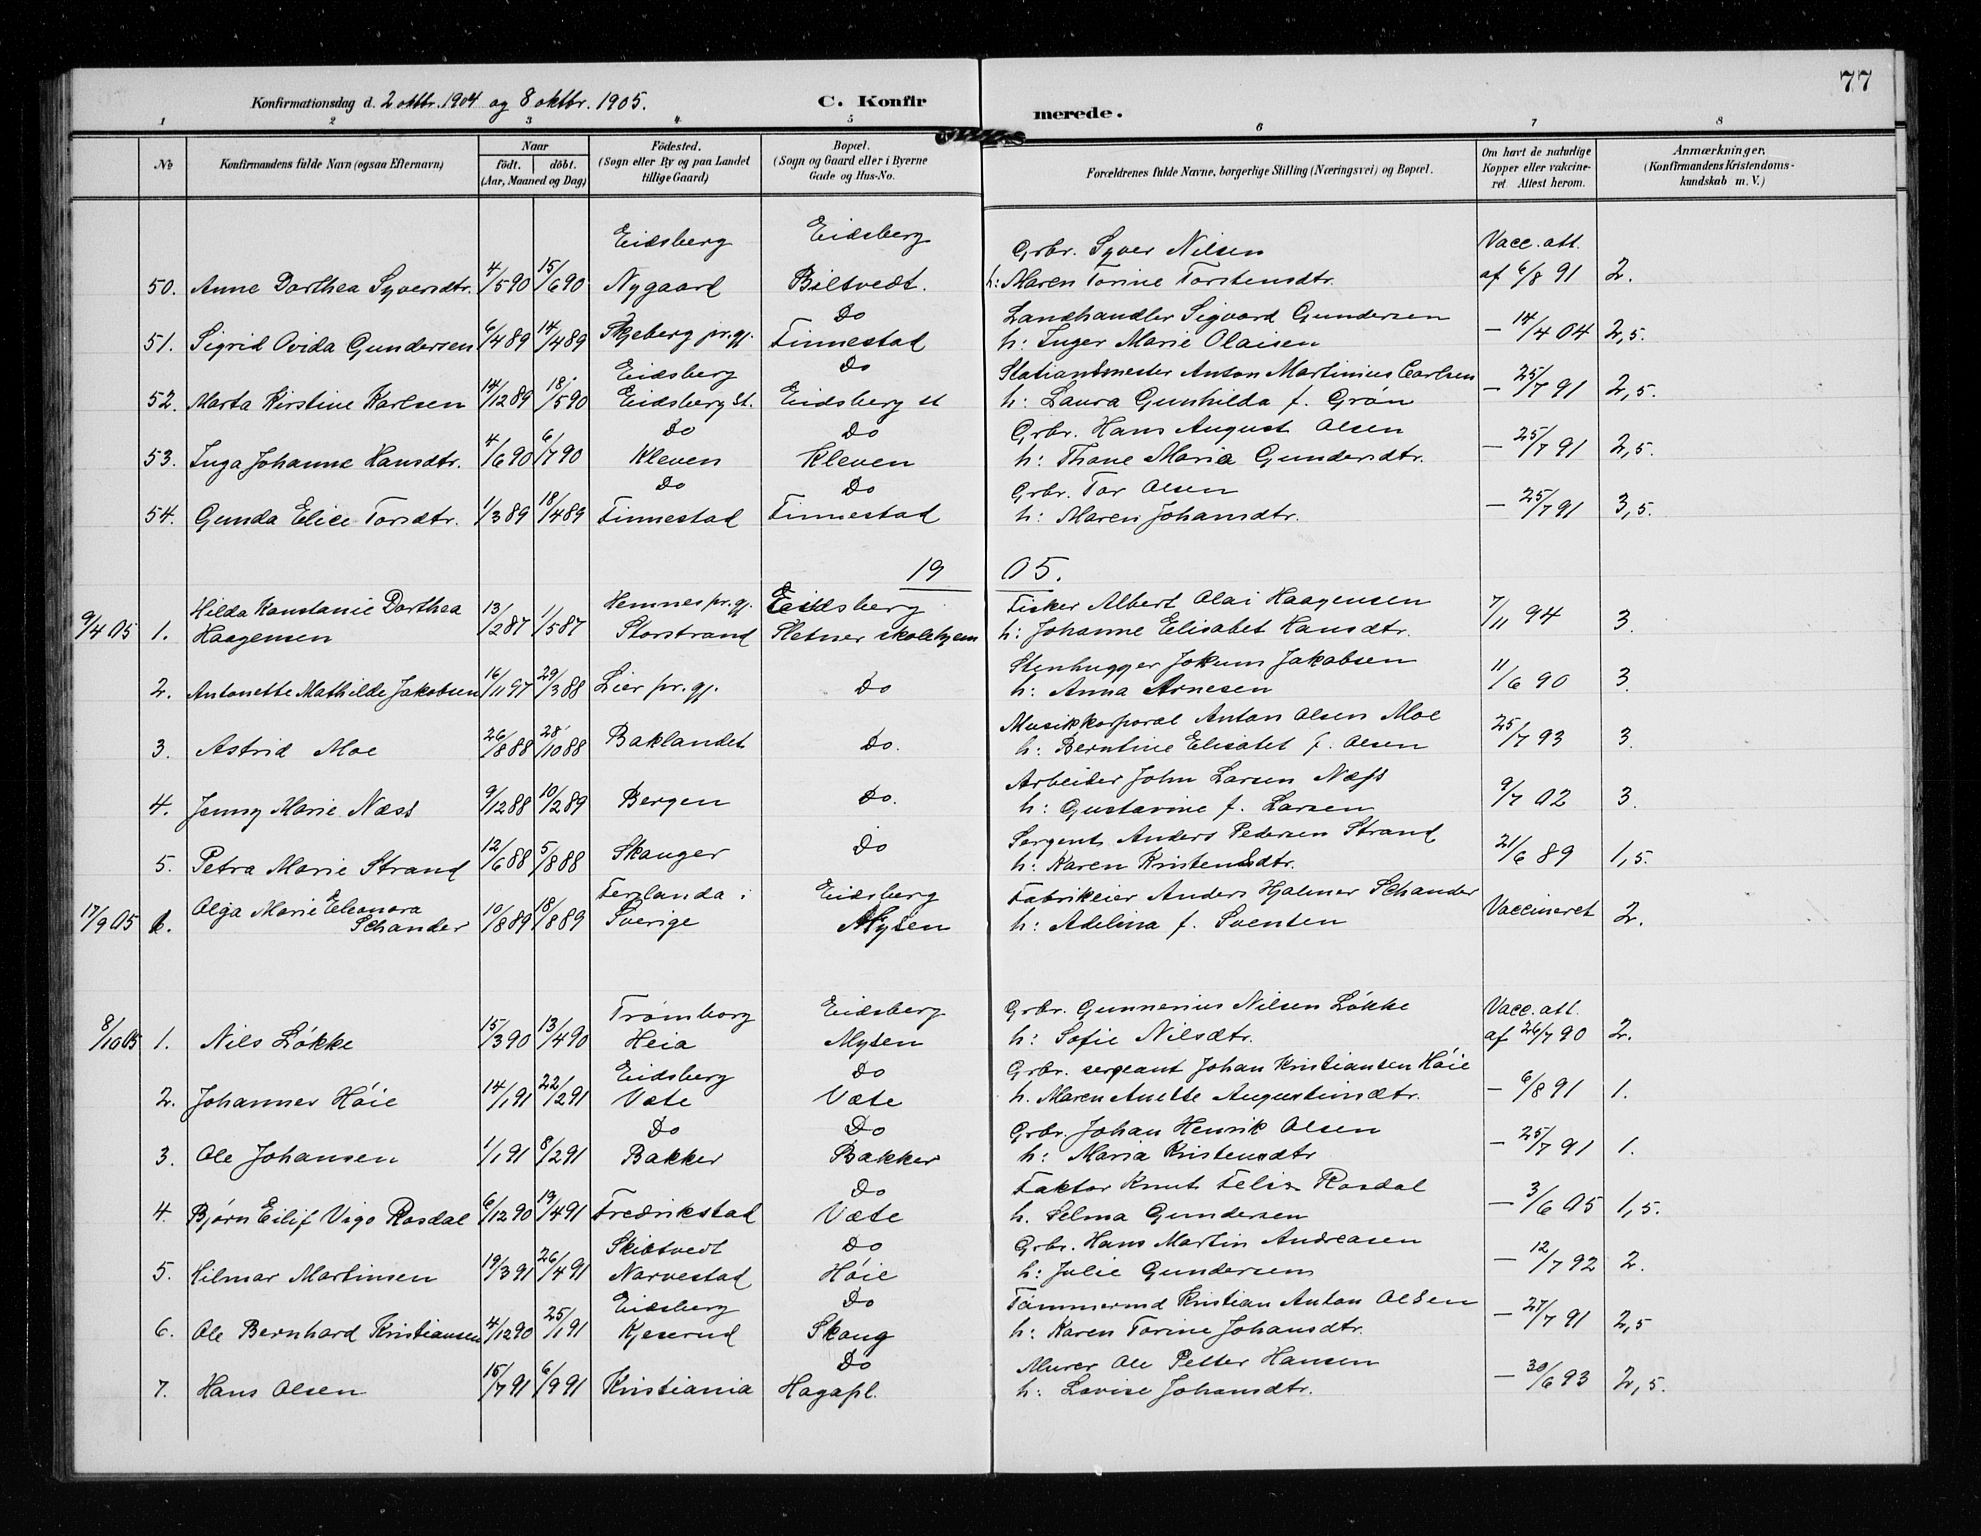 77
Konfirmationsdag d. 2 oktbr. 1904 og 8 oktbr. 1905. C. Konfirmerede.
1 2 3 4 5 6 7 8
No
Konfirmandens fulde Navn (ogsaa Efternavn)
Naar
født. døbt.
(Aar, Maaned og Dag)
Fødested.
(Sogn eller By og paa Landet
tillige Gaard)
Bopæl.
(Sogn og Gaard eller i Byerne
Gade og Hus-No.
Forældrenes fulde Navne, borgerlige Stilling (Næringsvei) og Bopæl.
Om havt de naturlige
Kopper eller vakcine-
ret Attest herom.
Anmærkninger.
(Konfirmandens Kristendoms-
kundskab m. V.)
Eidsberg Eidsberg Grbr. Syver Nilsen Vacc. att.
50. Anne Dorthea Syversdtr. 4/5 90 15/6 90 Nygaard Biltvedt. h: Maren Torine Torstensdtr. af 6/8 91 2.
Do Landhandler Sigvard Gundersen
51. Sigrid Ovida Gundersen 6/4 89 14/4 89 Skjeberg pr.gj. Finnestad h: Inger Marie Olaisen — 14/4 04 2,5.
Eidsberg Do Stationsmester Anton Martinius Carlsen
52. Marta Kirstine Karlsen 14/12 89 18/5 90 Eidsberg st. Eidsberg st h: Laura Gunhilda f. Grøn — 25/7 91 2,5.
Do Do Grbr. Hans August Olsen
53. Inga Johanne Hansdtr. 4/6 90 6/7 90 Kleven Kleven h: Thone Maria Gundersdtr. — 25/7 91 2,5.
Do Do Grbr. Tor Olsen
54. Gunda Elise Torsdtr. 1/3 89 18/4 89 Finnestad Finnestad h: Maren Johansdtr. — 25/7 91 3,5.
19 05.
Hilda Konstanie Dorthea Hemnes pr.gj. Eidsberg Fisker Albert Olai Haagensen
9/4 05 1. Haagensen 13/2 87 1/5 87 Storstrand Sletner skolehjem h: Johanne Elisabet Hansdtr. 7/11 94 3.
Stenhugger Jokum Jakobsen
2. Antonette Mathilde Jakobsen 16/11 97 29/3 88 Lier pr.gj. Do h: Anna Arnesen 11/6 90 3.
Musikkorporal Anton Olsen Moe
3. Astrid Moe 26/8 88 28/10 88 Baklandet Do. h: Berntine Elisabet f. Olsen 25/7 93 3.
Arbeider John Larsen Næss
4. Jenny Marie Næss 9/12 88 10/2 89 Bergen Do. h: Gustavine f. Larsen 9/7 02 3.
Sergent Anders Pedersen Strand
5. Petra Marie Strand 12/6 88 5/8 88 Skauger Do h: Karen Kristensdtr. 21/6 89 1,5.
Olga Marie Eleonora Ferglanda i Eidsberg Fabrikeier Anders Hjalmer Schander
17/9 05 6. Schander 10/8 89 18/8 89 Sverige Mysen h: Adelina f. Svensen Vaccineret 2.
Trømborg Eidsberg Grbr. Gunnerius Nilsen Løkke Vacc. att.
8/10 05 1. Nils Løkke 15/3 90 13/4 90 Heia Mysen h: Sofie Nilsdtr. af 26/7 90 2.
Eidsberg Do Grbr. sergeant Johan Kristiansen Høie
2. Johannes Høie 14/1 91 22/2 91 Væte Væte h. Maren Anette Augustinsdtr. — 6/8 91 1.
Do Do Grbr. Johan Henrik Olsen
3. Ole Johansen 1/1 91 8/2 91 Bakker Bakker h: Maria Kristensdtr — 25/7 91 1.
Do Faktor Knut Felix Rosdal
4. Bjørn Eilif Vigo Rosdal 6/12 90 19/4 91 Fredrikstad Væte h. Selma Gundersen — 3/6 05 1,5.
Skibtvedt Do Grbr. Hans Martin Andreasen
5. Hilmar Martinsen 19/3 91 26/4 91 Narvestad Høie h: Julie Gundersen — 12/7 92 2.
Eidsberg Do Tømmermd Kristian Anton Olsen
6. Ole Bernhard Kristiansen 4/12 90 25/1 91 Kjeserud Skoug h: Karen Torine Johansdtr. — 27/7 91 2,5
Do Murer Ole Petter Hansen
7. Hans Olsen 15/7 91 6/9 91 Kristiania Hagapl. h: Lovise Johansdtr. — 30/6 93 2,5.